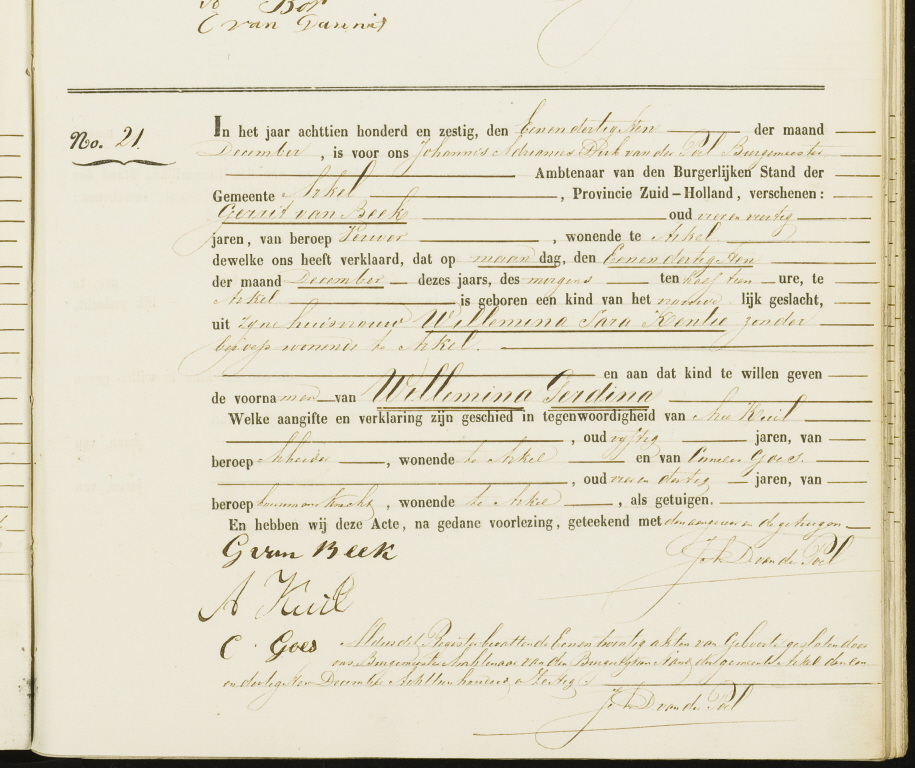 Bot
C van Tannis
No. 21.
In het jaar achttien honderd en zestig, den Eenendertigsten der maand
December, is voor ons Johannis Adrianus Dirk van der Poel Burgemeester
Ambtenaar van den Burgerlijken Stand der
Gemeente Arkel, Provincie Zuid-Holland, verschenen:
Gerrit van Beek oud vier en veertig
jaren, van beroep, wonende te Arkel
dewelke ons heeft verklaard, dat op maandag, den Eenendertigsten
der maand December dezes jaars, des morgens ten half tien ure, te
Arkel is geboren een kind van het vrouwelijk geslacht,
uit zijne huisvrouw Willemina Sara Kentie zonder
beroep wonende te Arkel.
en aan dat kind te willen geven
de voornamen van Willemina Gerdina
Welke aangifte en verklaring zijn geschied in tegenwoordigheid van Arie Kuil
, oud vyftig jaren, van
beroep Arbeider, wonende te Arkel en van Cornelis Goes.
, oud vier en dertig jaren, van
beroep bouwmansknecht, wonende te Arkel, als getuigen.
En hebben wij deze Acte, na gedane voorlezing, geteekend met den aangever en de getuigen
G van Beek
Joh A D van der Poel
A Kuil
C. Goes
Aldus dit Register bevattende Eenentwintig akten van Geboorte gesloten door
ons Burgemeester Ambtenaar van den Burgerlyken Stand der gemeente Arkel den een
en dertigsten December Achttien honderd en Zestig.
Joh A D van der Poel